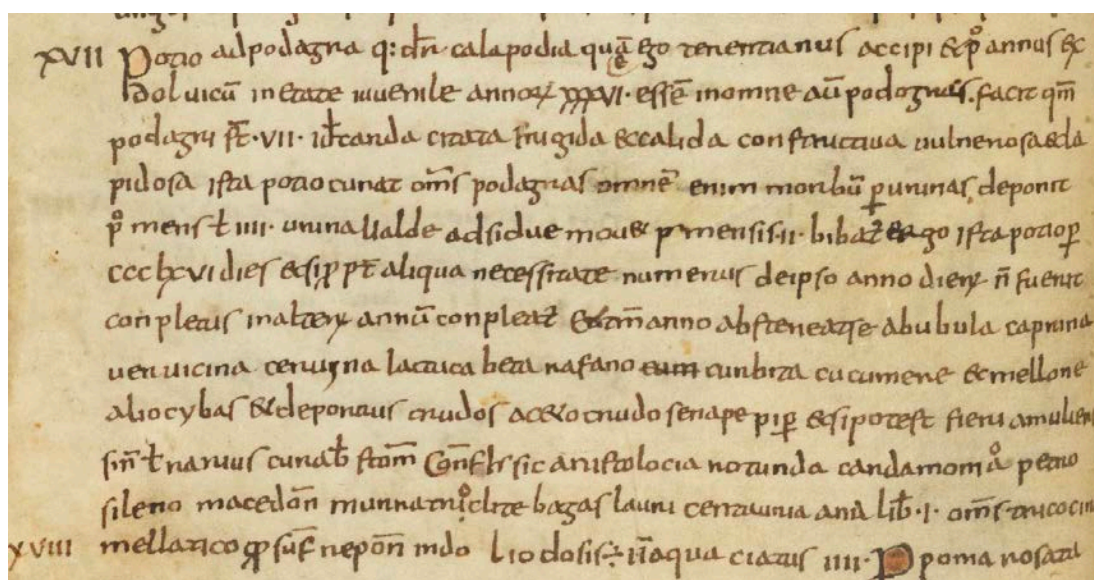 XVII Potio ad podagra q: dn̄ calapodia quā ego terentianus accipi & p̊ annus ex
dolui cū in etate iuuenile annorꝝ XXXVI· essē in omne aū podogras. facit qm̄
podagri st̄·VII· id̄ canda citata frigida & calida constructiua uulnerosa & la
pidosa ista potio curat om̄s podagras omnē enim morbū ꝑ urinas deponit
p̊ mens ł IIII· urina ualde adsidue mou& p mensis II· bibat̄ ergo ista potio ꝑ
CCCLXVI dies & si ꝑ pt̄ aliqua necessitate numerus de ipso anno dierꝝ n̄ fuerit
conpletus in alterꝝ annū conpleat̄ & tm̄ anno absteneat se a bubula caprina
ueruicina ceruina lactuca beta rafano cum curbita cucumene & mellone
alio cybas & de porrius crudos aceto crudo senape piꝑ & si potest fieri a muliere
sin̄ ł rarius curab̄ stom̄ Conf̄ts sic aristolocia rotunda cardamomů petro
sileno macedon̄ murra tri̊clite bagas lauri centauria anā lib̄·I· om̄s tricocin
XVIII mellatico ꝓ suf̄ repon̄ in do lio dosis ÷ in̄ aqua ciatus IIII· P poma rosata